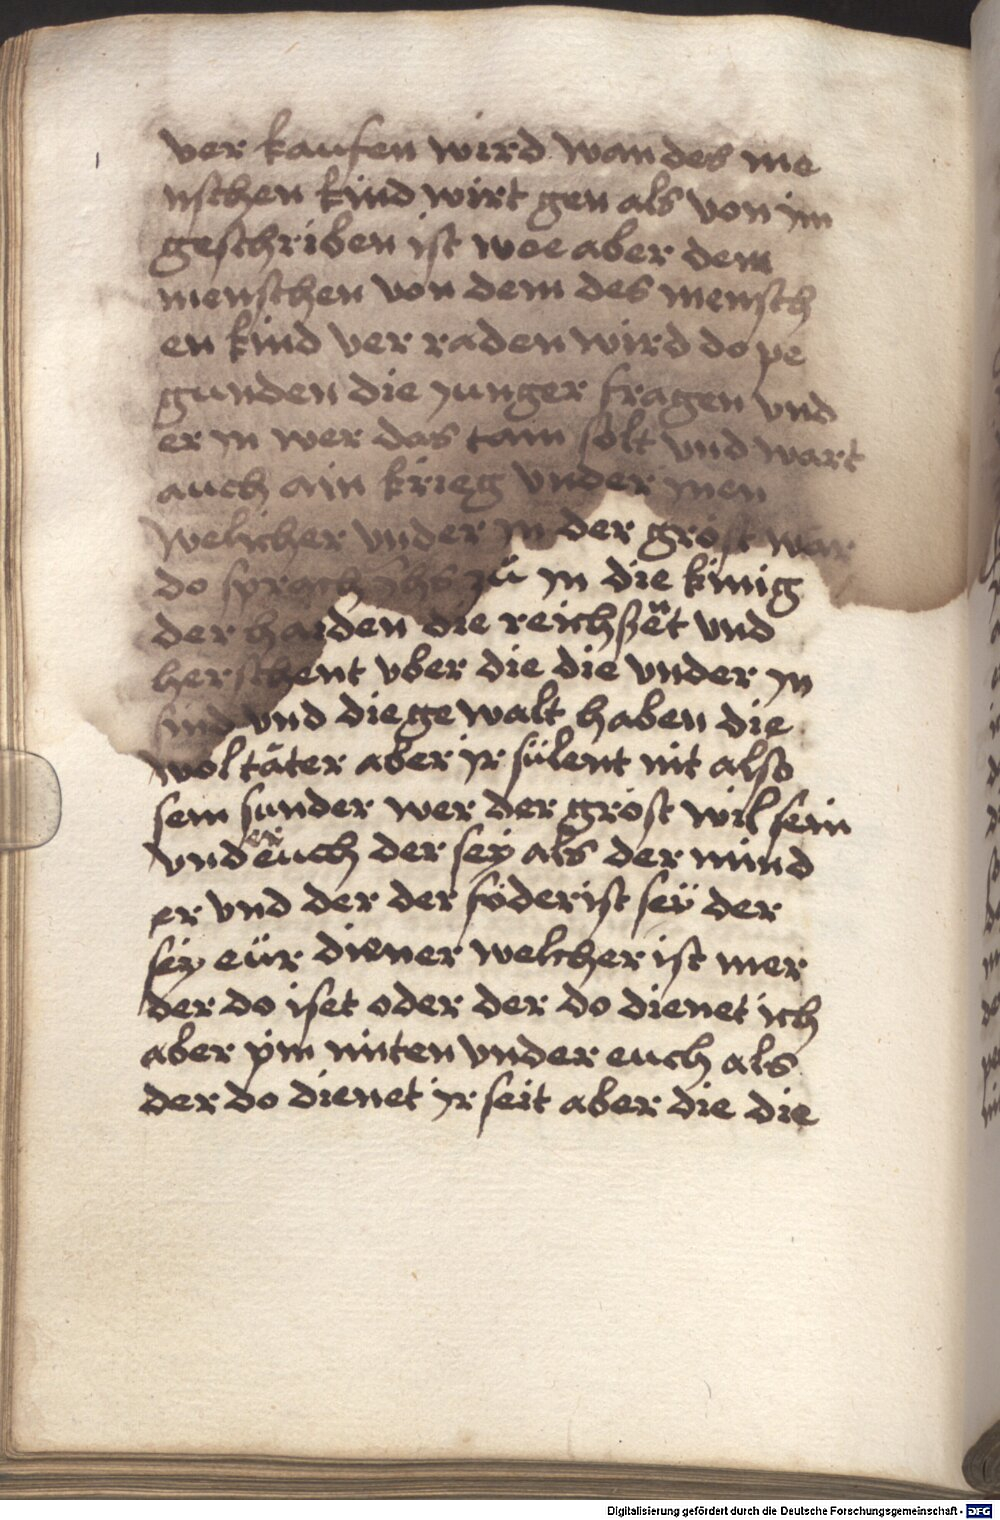 ver kaufen wird wan des me
nschen kind wirt gen als von im
geschriben ist wee aber dem
menschen von dem des mensch
en kind ver raden wird do pe
gunden die junger fragen vnd
er in wer das tain solt vnd wart
auch ain krieg vnder inen
welicher vnder in der gröst wär
do sprach ihs zů in die künig
der haiden die reichsßet vnd
herschent vber die die vnder in
sind vnd die gewalt haben die
woltäter aber ir sülent nit also
sein sunder wer der gröst wil sein
vnder euch der sey als der mind
er vnd der der föderist sey der
sey eür diener welcher ist mer
der do iset oder der do dienet ich
aber pin miten vnder euch als
der do dienet ir seit aber die die
Digitalisierung gefördert durch die Deutsche Forschungsgemeinschaft - DFG